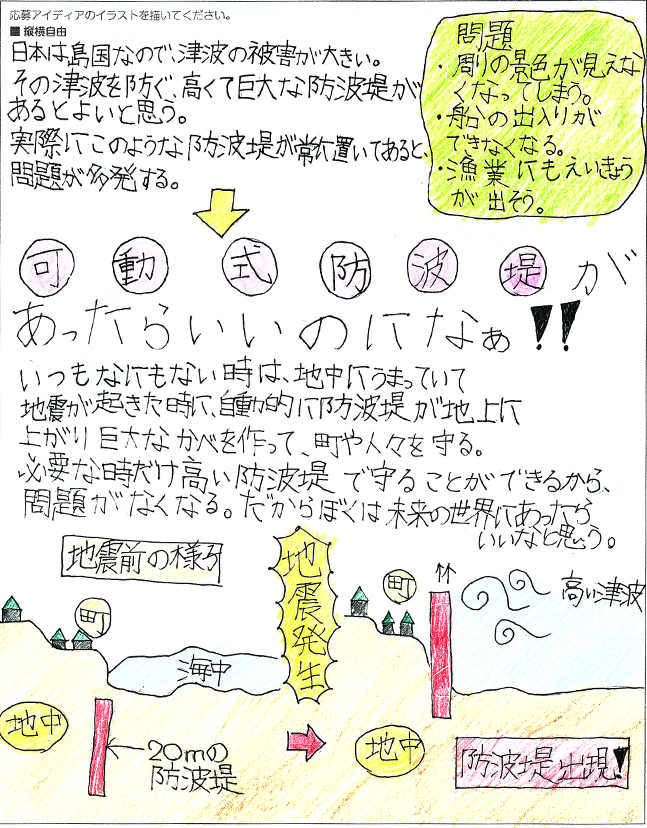 応募アイディアのイラストを描いてください。
■ 縦横自由
日本は島国なので、津波の被害が大きい。
その津波を防ぐ、高くて巨大な防波堤が
あるとよいと思う。
実際にこのような防波堤が常に置いてあると、
問題が多発する。
問題
・周りの景色が見えな
くなってしまう。
・船の出入りが
できなくなる。
・漁業にもえいきょう
が出そう。
可動式防波堤が
あったらいいのになぁ!!
いつもなにもない時は、地中にうまっていて
地震が起きた時に、自動的に防波堤が地上に
上がり巨大なかべを作って、町や人々を守る。
必要な時だけ高い防波堤で守ることができるから、
問題がなくなる。だからぼくは未来の世界にあったら
いいなと思う。
地震前の様子
町
海中
地中
20mの
防波堤
地震発生
町
高い津波
地中
防波堤出現!